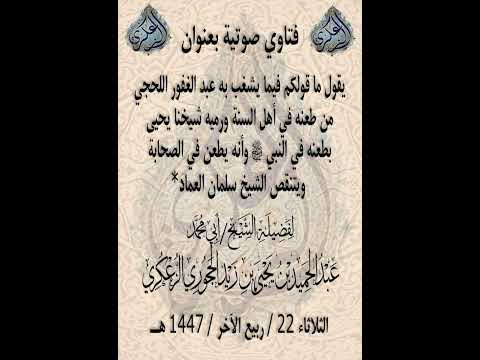 فتاوي صوتية بعنوان
يقول ما قولكم فيما يشغب به عبد الغفور اللحجي
من طعنه في أهل السنة ورميه شيخنا يحيى
بطعنه في النبي ﷺ وأنه يطعن في الصحابة
ويتنقص الشيخ سلمان العماد*
لفضيلة الشيخ/أبي محمد
عبد الحميد بن يحيى بن زيد الحجوري الزعكري
الثلاثاء 22 / ربيع الأخر / 1447 هـ